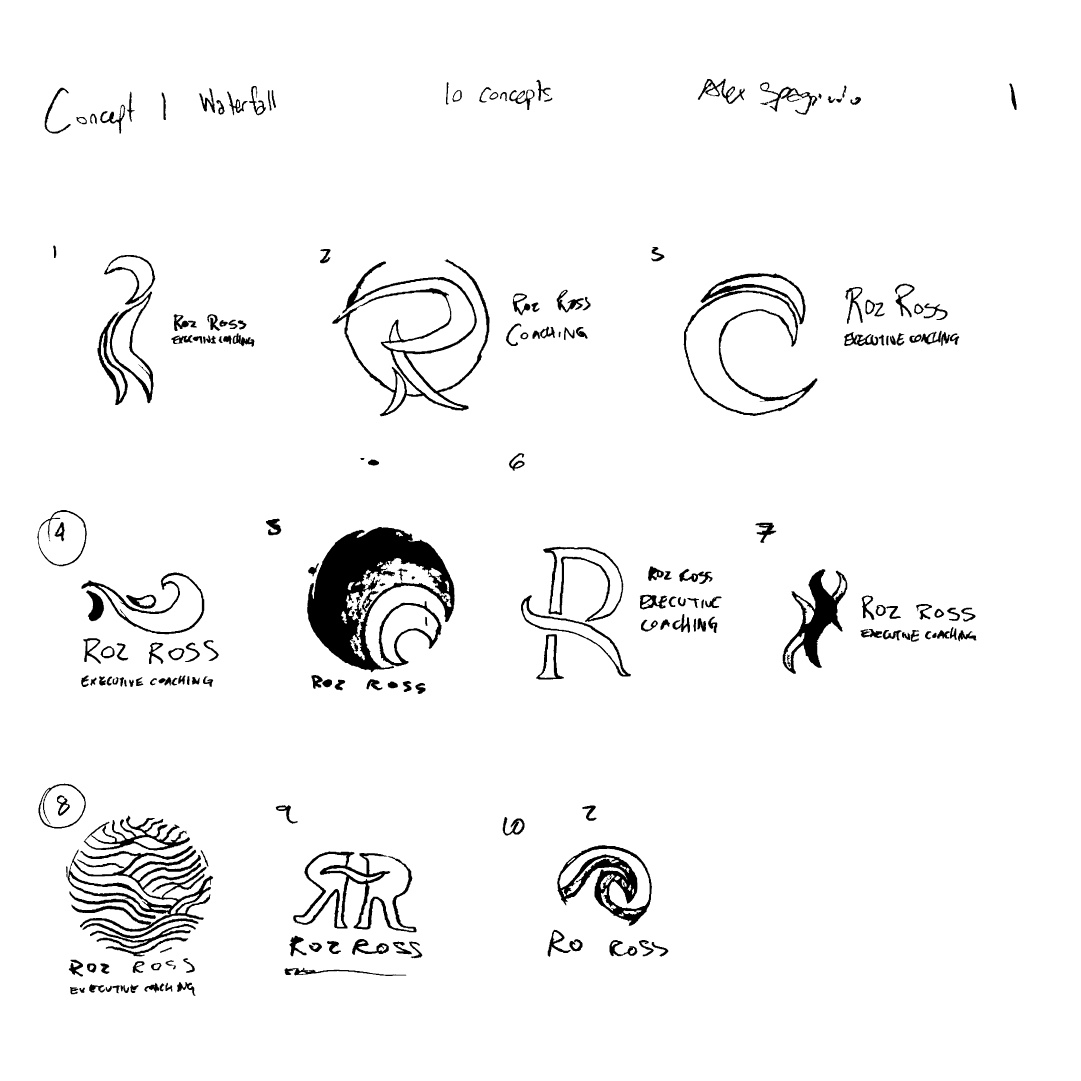 Concept 1 Waterfall 10 concepts Alex 1
1 2 3
Roz Ross
EXECUTIVE COACHING
Roz Ross
COACHING
Roz Ross
EXECUTIVE COACHING
6
4 5 7
ROZ ROSS
EXECUTIVE COACHING
ROZ ROSS
ROZ ROSS
EXECUTIVE
COACHING
ROZ ROSS
EXECUTIVE COACHING
8 9 10 Z
ROZ ROSS
EXECUTIVE COACHING
ROZ ROSS
RO ROSS